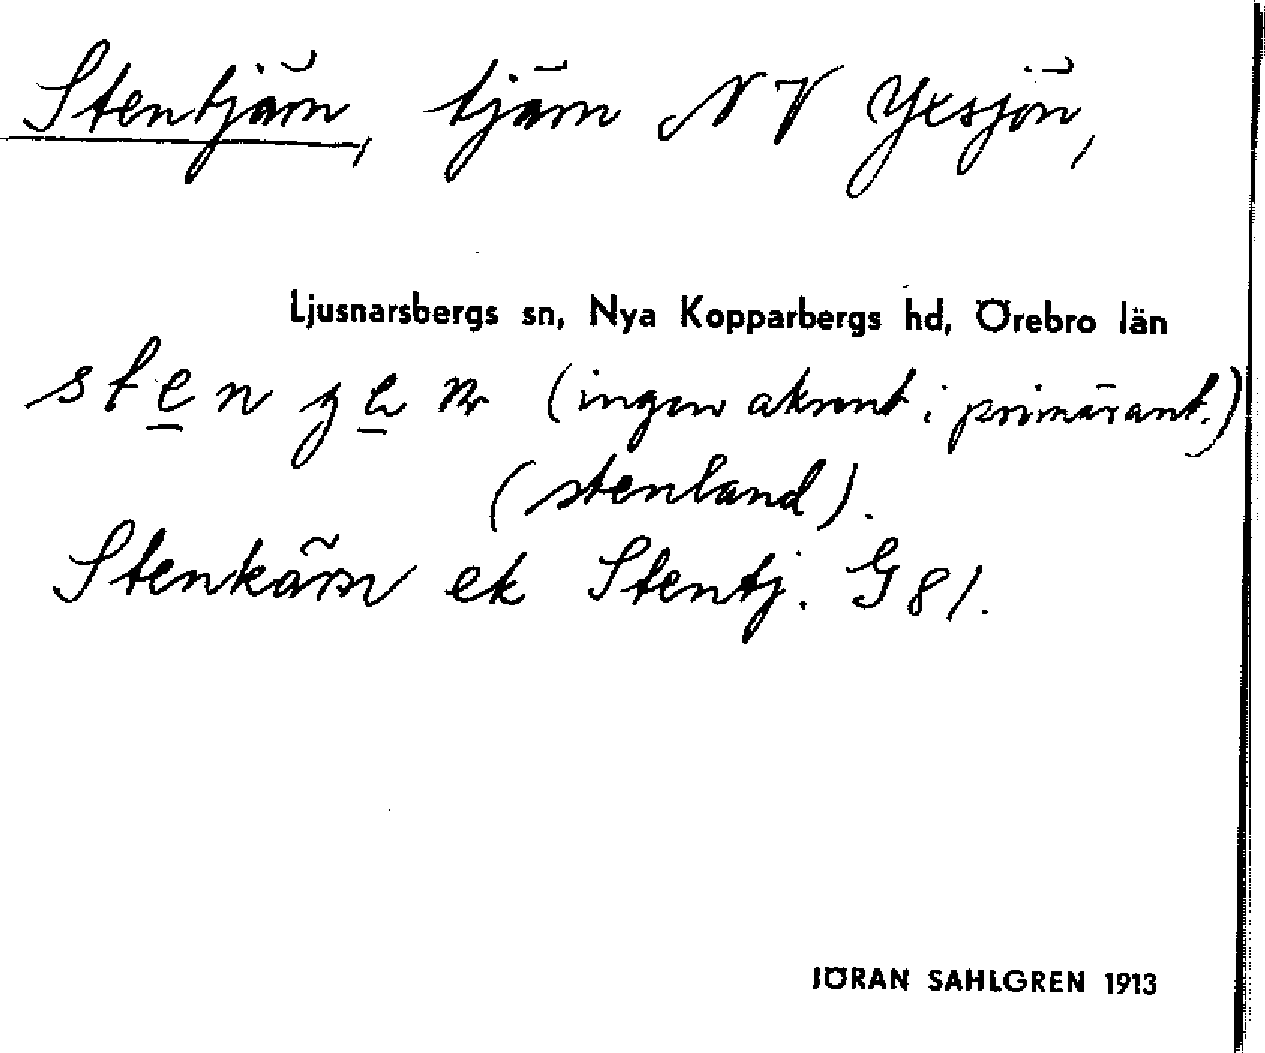 Stentjärn, tjärn NV Yxsjön,
Ljusnarsbergs sn, Nya Kopparbergs hd, Örebro län
sten (ingen akcent i primärant.)
(stenland).
Stenkärn ek Stentj. G 81.
JÖRAN SAHLGREN 1913